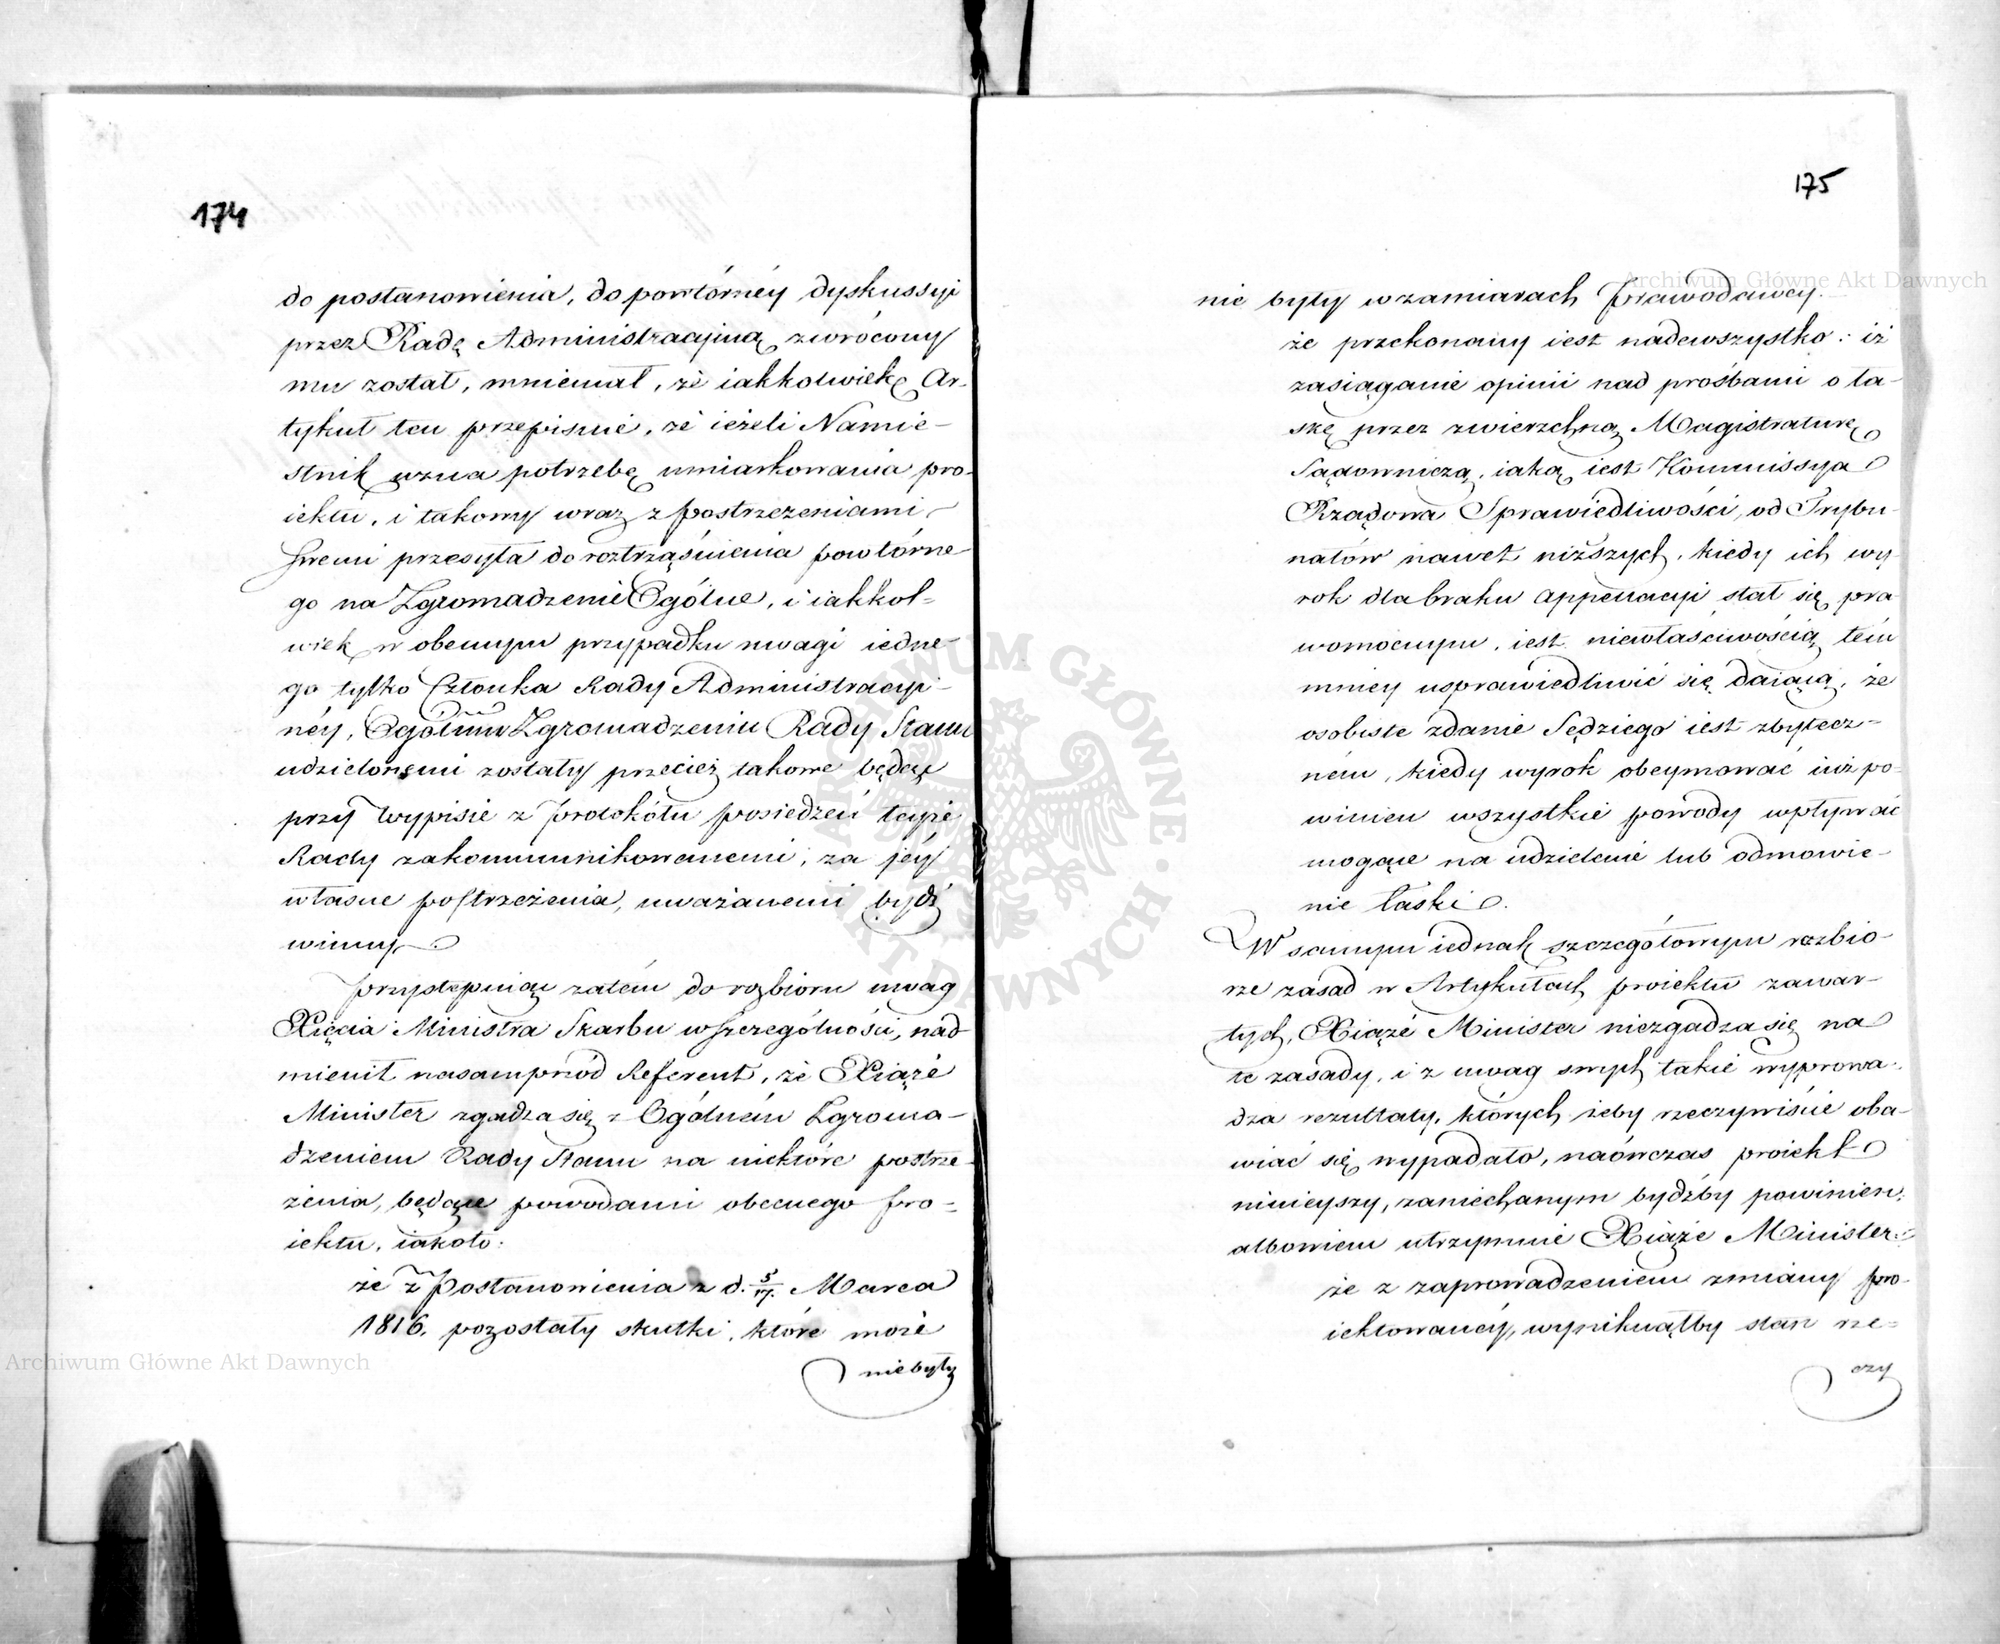 174
do postanowienia, do powtórnéy dyskussyi
przez Radę Administracyiną zwrócony
mu został, mniemał, że iakkolwiek Ar-
tykuł ten przepisuie, że ieżeli Namie-
stnik uzna potrzebę umiarkowania pro-
iektu, i takowy wraz z postrzeżeniami
swemi przesyła do roztrząśnienia powtórne-
go na Zgromadzenie Ogólne, i iakkol-
wiek w obecnym przypadku uwagi iedne-
go tylko Członka Rady Administracyi-
néy, Ogólnemu Zgromadzeniu Rady Stanu
udzielonemi zostały przecież takowe będąc
przy wypisie z protokółu posiedzeń teyże
Rady zakommunikowanemi, za jéy
własne postrzeżenia, uważanemi bydź
winny.
Przystępuiąc zatém do rozbioru uwag
Xięcia Ministra Skarbu w szczególności, nad-
mienił nasamprzód Referent, że Xiąże
Minister zgadza się z Ogólném Zgroma-
dzeniem Rady Stanu na niektóre postrze-
żenia, będące powodami obecnego pro-
iektu, iakoto:
że z Postanowienia z d. 5/17. Marca
1816. pozostały skutki, które może
niebyły
175
nie były w zamiarach prawodawcy.
że przekonany iest nadewszystko: iż
zasiąganie opinii nad prośbami o ła-
skę przez zwierzchną Magistraturę
Sądowniczą, iaką iest Kommissya
Rządowa Sprawiedliwości, od Trybu-
nałów nawet niższych, kiedy ich wy-
rok dla braku appellacyi stał się pra-
womocnym, iest niewłaściwością tém
mniey usprawiedliwić się daiącą, że
osobiste zdanie Sędziego iest zbytecz-
ném, kiedy wyrok obeymować iuż po-
winien wszystkie powody wpływać
mogące na udzielenie lub odmowie-
nie łaski.
W samym iednak szczegółowym rozbio-
rze zasad w Artykułach proiektu zawar-
tych, Xiąże Minister niezgadza się na
te zasady, i z uwag swych takie wyprowa-
dza rezultaty, których żeby rzeczywiście oba-
wiać się wypadało, naówczas proiekt
ninieyszy, zaniechanym bydźby powinien,
albowiem utrzymuie Xiąże Minister:
że z zaprowadzeniem zmiany pro-
iektowanéy, wyniknąłby stan rze-
czy
Archiwum Główne Akt Dawnych
Archiwum Główne Akt Dawnych
ARCHIWUM GŁÓWNE AKT DAWNYCH